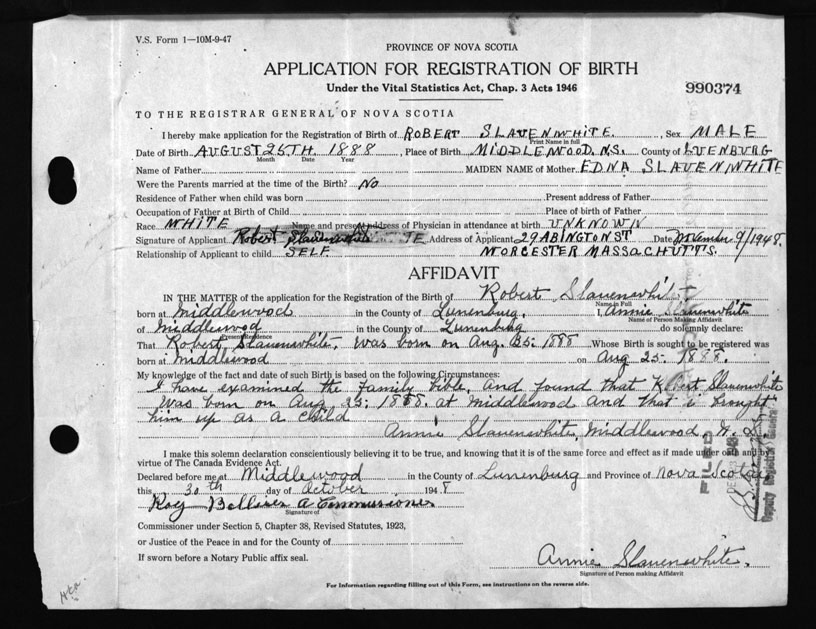 V.S. Form 1—10M-9-47
PROVINCE OF NOVA SCOTIA
APPLICATION FOR REGISTRATION OF BIRTH
Under the Vital Statistics Act, Chap. 3 Acts 1946
990374
TO THE REGISTRAR GENERAL OF NOVA SCOTIA
I hereby make application for the Registration of Birth of ROBERT SLAUENWHITE, Sex MALE
Print Name in full
Date of Birth AUGUST 25TH. 1888, Place of Birth MIDDLEWOOD. N.S. County of LUENBURG
Month Date Year
Name of Father MAIDEN NAME of Mother EDNA SLAUENWHITE
Were the Parents married at the time of the Birth? NO
Residence of Father when child was born Present address of Father
Occupation of Father at Birth of Child Place of birth of Father
Race WHITE Name and present address of Physician in attendance at birth UNKNOWN
Signature of Applicant Robert Slauenwhite TE Address of Applicant 29 ABINGTON ST Date November 9/1948.
Relationship of Applicant to child SELF WORCESTER MASSACHUTTS.
AFFIDAVIT
IN THE MATTER of the application for the Registration of the Birth of Robert Slauenwhite
Name in Full
born at Middlewood in the County of Lunenburg, I, Annie Slauenwhite
Name of Person Making Affidavit
of Middlewood in the County of Lunenburg do solemnly declare:
Present Residence
That Robert Slauenwhite, was born on Aug. 25. 1888 Whose Birth is sought to be registered was
born at Middlewood on Aug 25. 1888.
My knowledge of the fact and date of such Birth is based on the following Circumstances:
I have examined the family bible, and found that Robert Slauenwhite
Was born on Aug 25. 1888. at Middlewood and that i brought
him up as a child
Annie Slauenwhite, Middlewood, N.S.
I make this solemn declaration conscientiously believing it to be true, and knowing that it is of the same force and effect as if made under oath and by
virtue of The Canada Evidence Act.
Declared before me at Middlewood in the County of Lunenburg and Province of Nova Scotia
this 30th day of October 1948
Roy A Commissioner
Signature of
Commissioner under Section 5, Chapter 38, Revised Statutes, 1923,
or Justice of the Peace in and for the County of
If sworn before a Notary Public affix seal.
Annie Slauenwhite.
Signature of Person making Affidavit
For Information regarding filling out of this Form, see instructions on the reverse side.
FILED
Deputy Registrar General